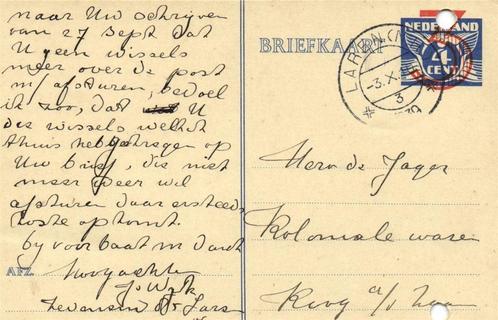 naar Uw schrijven
van 27 Sept dat
U geen wissels
meer over de post
afsturen, bedoel
ik zoo, dat U
de wissels
thuis op
Uw brief, die niet
meer weer wil
afsturen daar steeds
koste op komt.
by voor baat m dank
Hoogachte
AFZ.
BRIEFKAART
NEDERLAND
4
CENT
LAREN (N
-3.X
3
Heer de Jager
Koloniale waren
Koog a/d Zaan